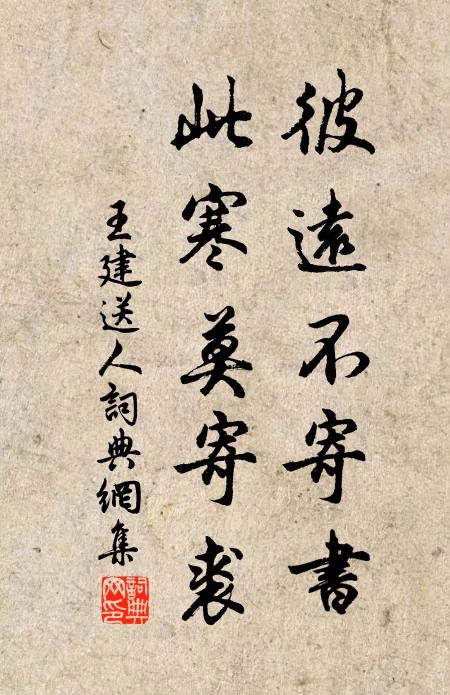 彼遠不寄書
此寒莫寄裘
王建送人詞典網集
詞典
网印